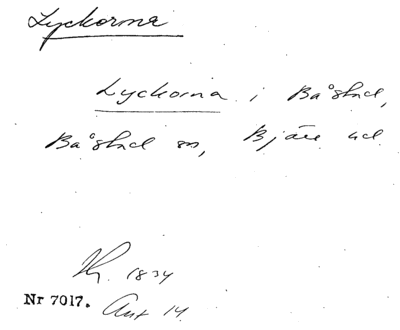 Lyckorna
Lyckorna i Båstad,
Båstad sn, Bjäre hd.
1834
Nr 7017. Ant 14